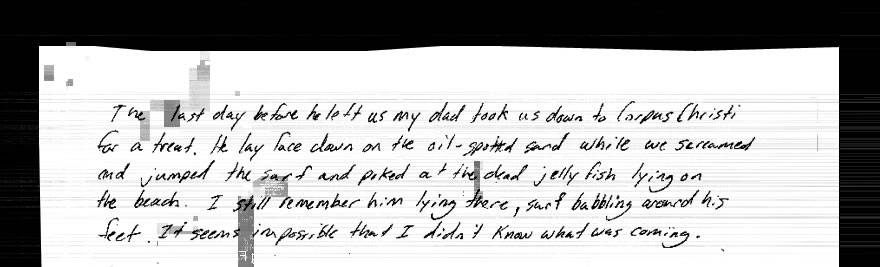 The last day before he left us my dad took us down to Corpus Christi
for a treat. He lay face down on the oil-spotted sand while we screamed
and jumped the surf and poked at the dead jelly fish lying on
the beach. I still remember him lying there, surf bubbling around his
feet. It seems impossible that I didn't know what was coming.